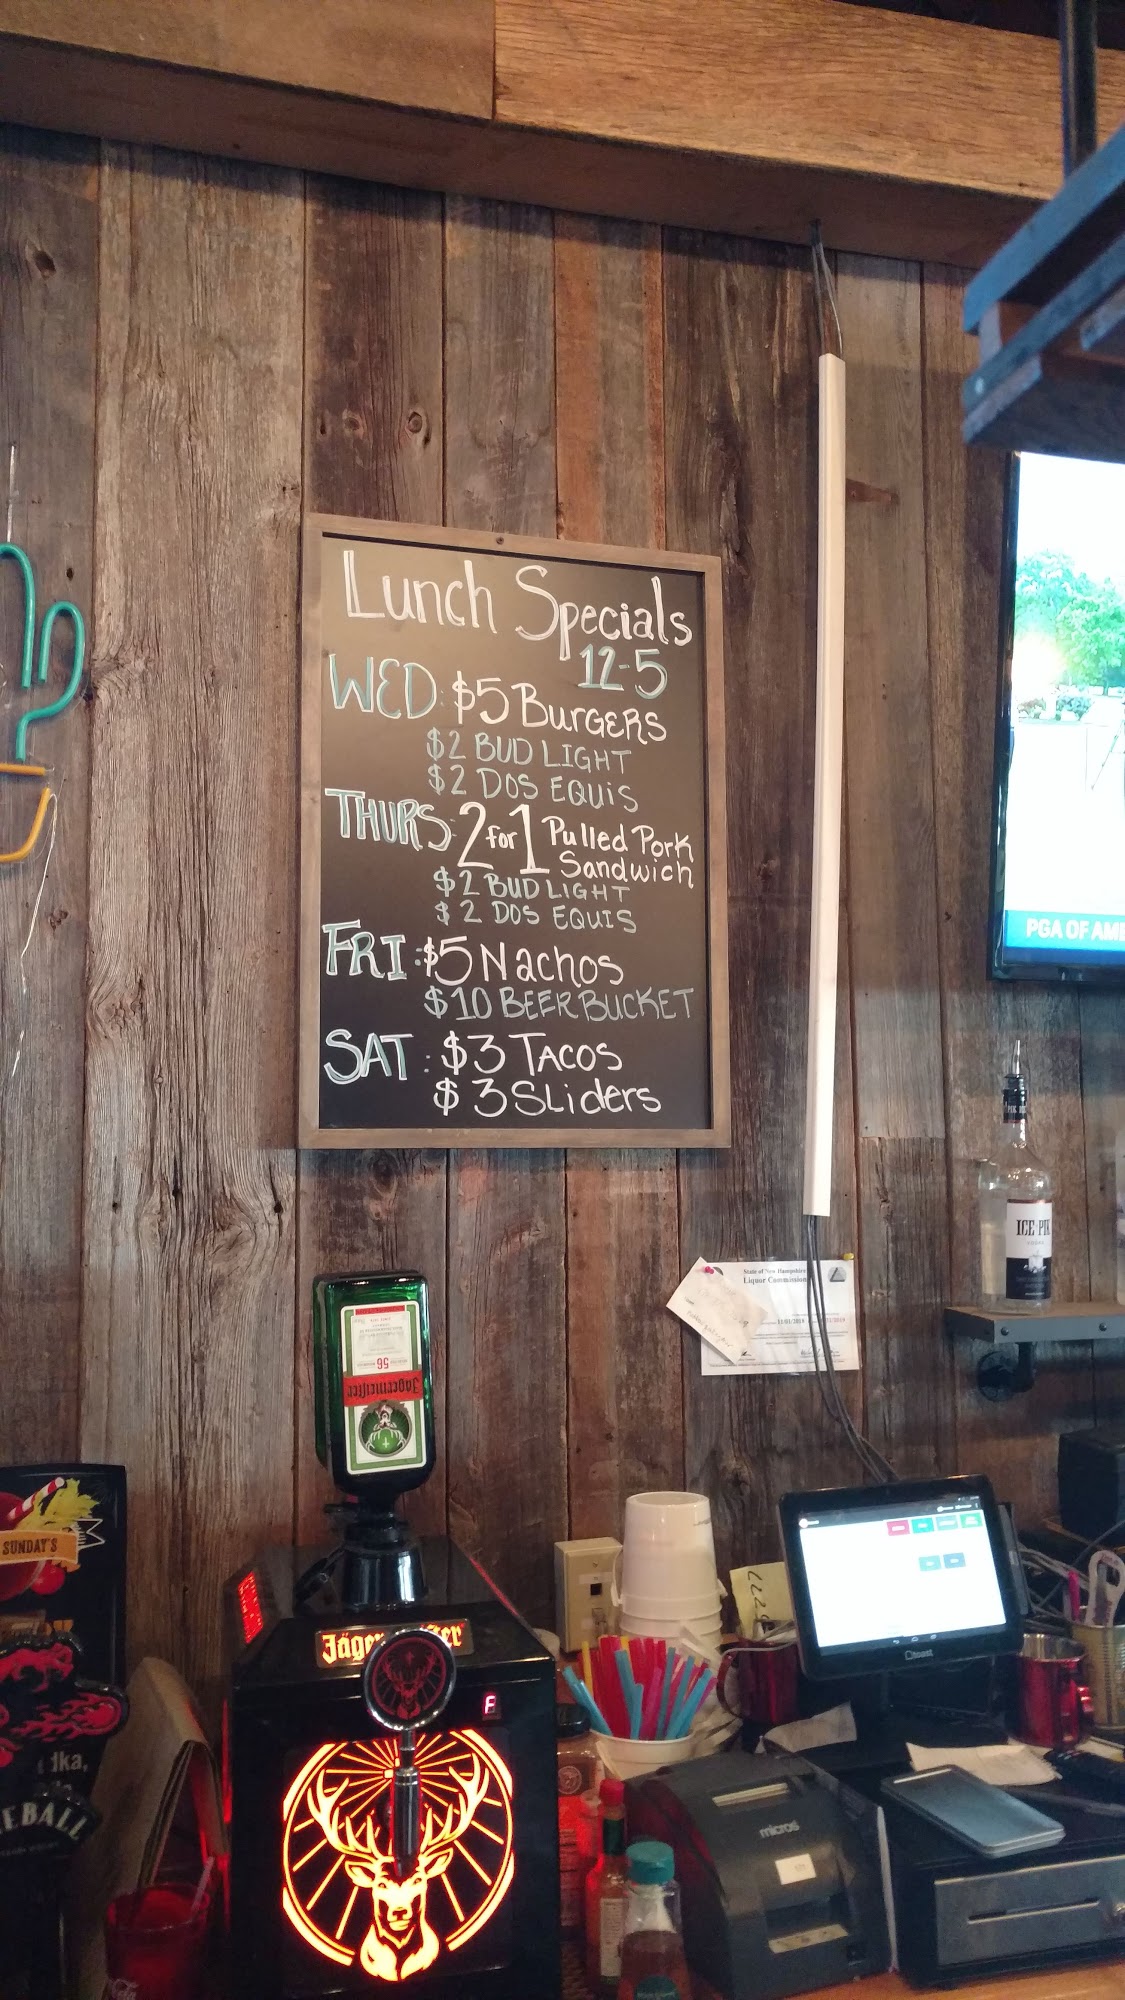 Lunch Specials
12-5
WED: $5 BURGERS
$2 BUD LIGHT
$2 DOS EQUIS
THURS: 2 for 1 Pulled Pork
Sandwich
$2 BUD LIGHT
$2 DOS EQUIS
FRI: $5 Nachos
$10 BEER BUCKET
SAT: $3 TACOS
$3 SLiders
PGA OF AM
ICE PIK
State of New Hampshire
Liquor Commission
56
Jägermeister
SUNDAY'S
Jäger
F
toast
micros